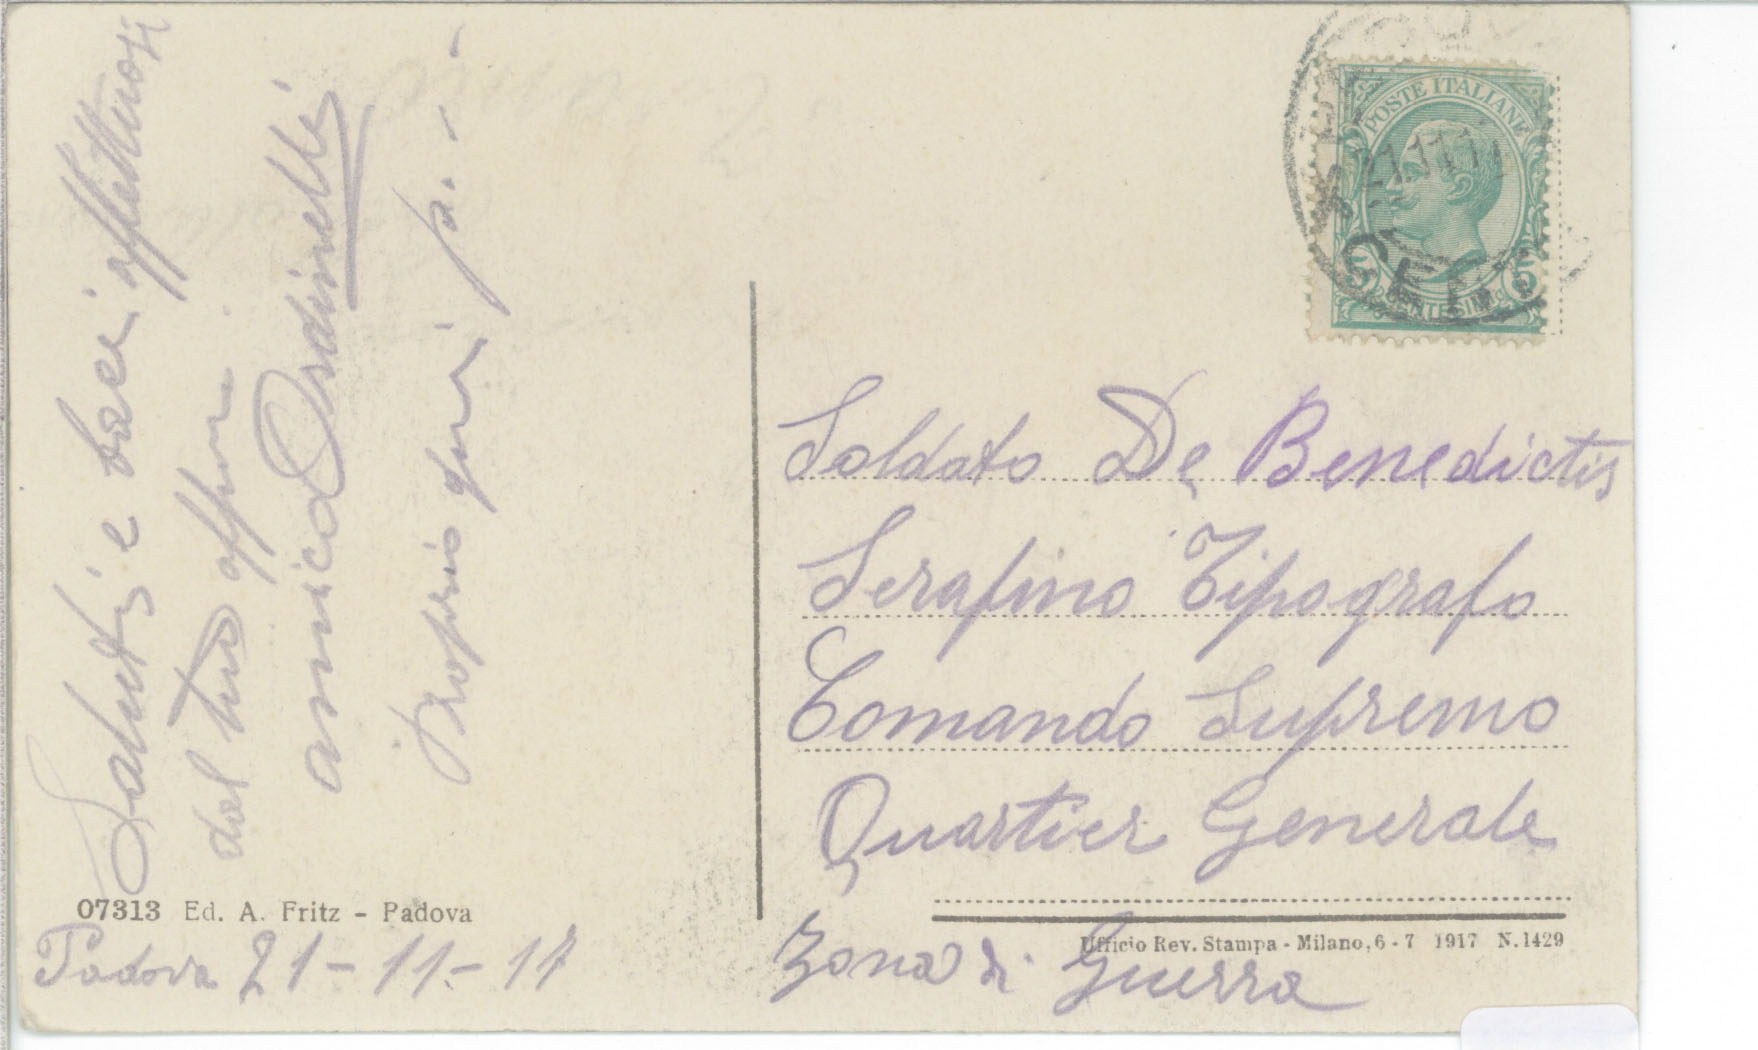 Saluti e baci affettuosi
dal tuo affmo
amico Ordinelli
Proprio qui
07313 Ed. A. Fritz - Padova
Padova 21-11-17
POSTE ITALIANE
21.11.17
5 CENTESIMI 5
Soldato De Benedictis
Serafino Tipografo
Comando Supremo
Quartier Generale
Ufficio Rev. Stampa - Milano, 6 - 7 1917 N. 1429
Zona di Guerra